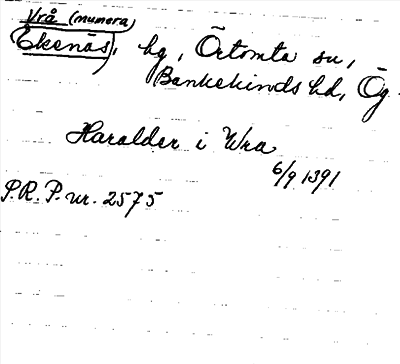 Vrå (numera)
Ekenäs, hg, Örtomta sn,
Bankekinds hd, Ög.
Haralder i Wra
6/9 1391
P.R.P. nr. 2575